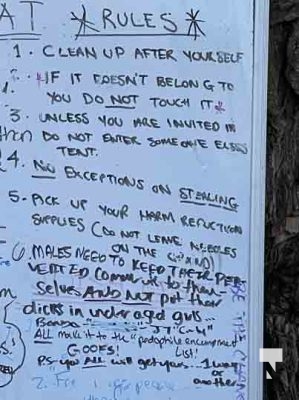 AT * RULES *
1. CLEAN UP AFTER YOURSELF
2. *IF IT DOESN'T BELONG TO
YOU DO NOT TOUCH IT*
3. UNLESS YOU ARE INVITED IN
DO NOT ENTER SOMEONE ELSES
TENT.
4. NO EXCEPTIONS ON STEALING
5. PICK UP YOUR HARM REDUCTION
SUPPLIES (DO NOT LEAVE NEEDLES
ON THE GROUND)
6. MALES NEED TO KEEP THEIR PER
VERTED comments to them-
selves AND NOT put their
dicks in underaged girls..
ALL make it to the "pedophile encampment
GOOFS! List!
P.S. you ALL will get yours.. 1 way
or
another
N